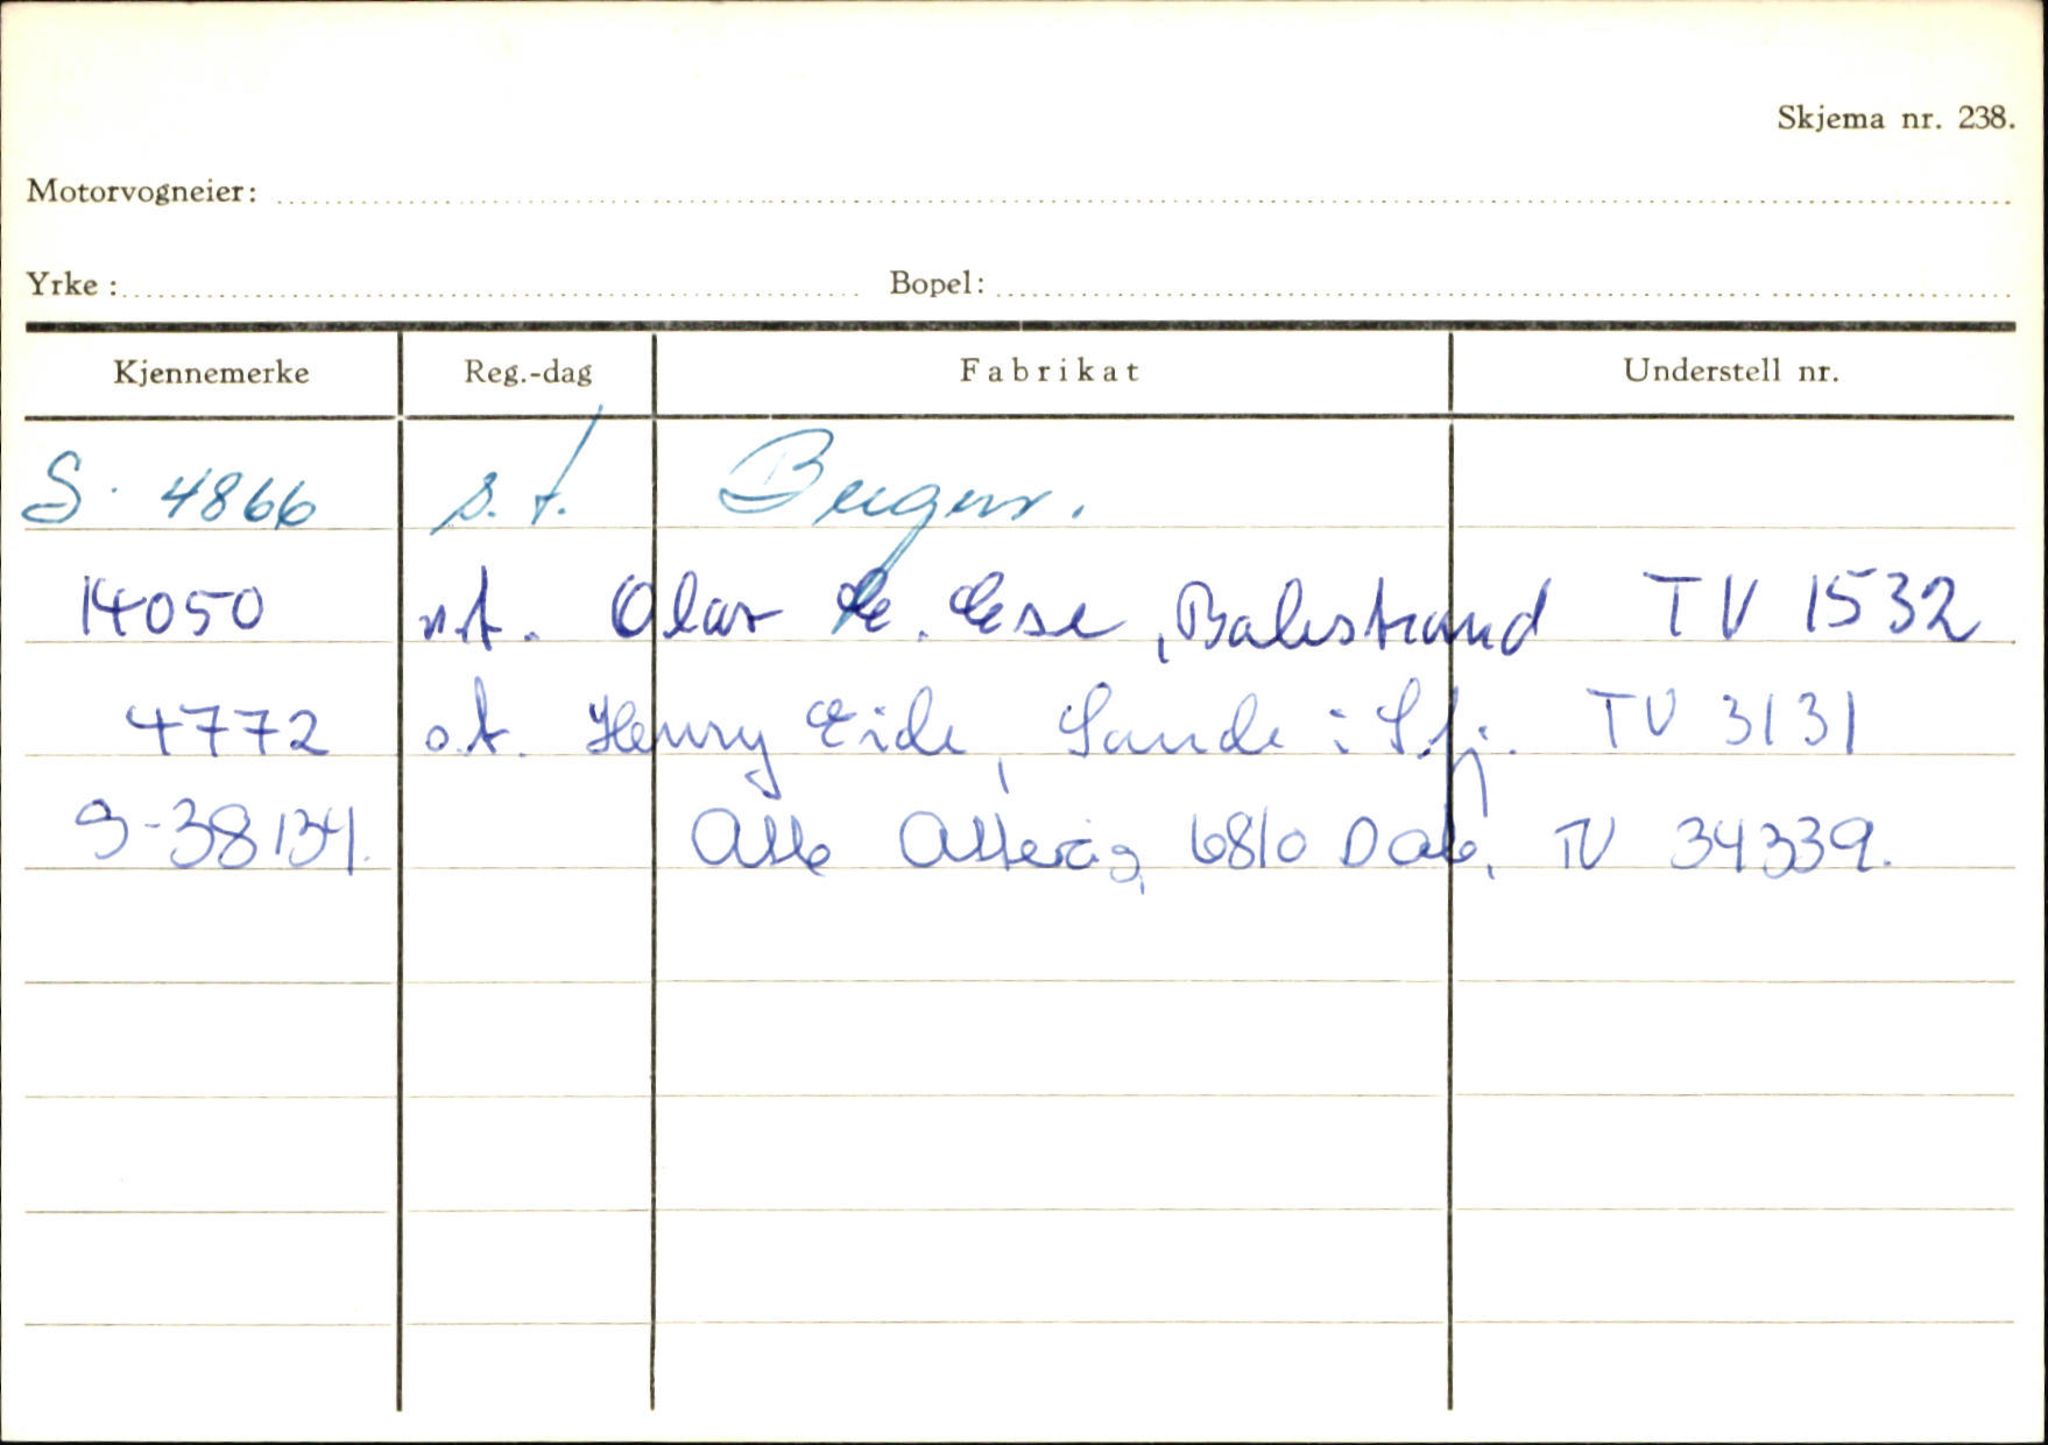 Skjema nr. 238.
Motorvogneier:
Yrke : Bopel:
Kjennemerke Reg.-dag Fabrikat Understell nr.
S. 4866 s.t. Bergen.
14050 n.t. Olav E. Ese, Balestrand TV 1532
4772 o.t. Henry Eide, Sande i S.fj. TV 3131
S-38134. Atle 6810 Dale, TV 34339.